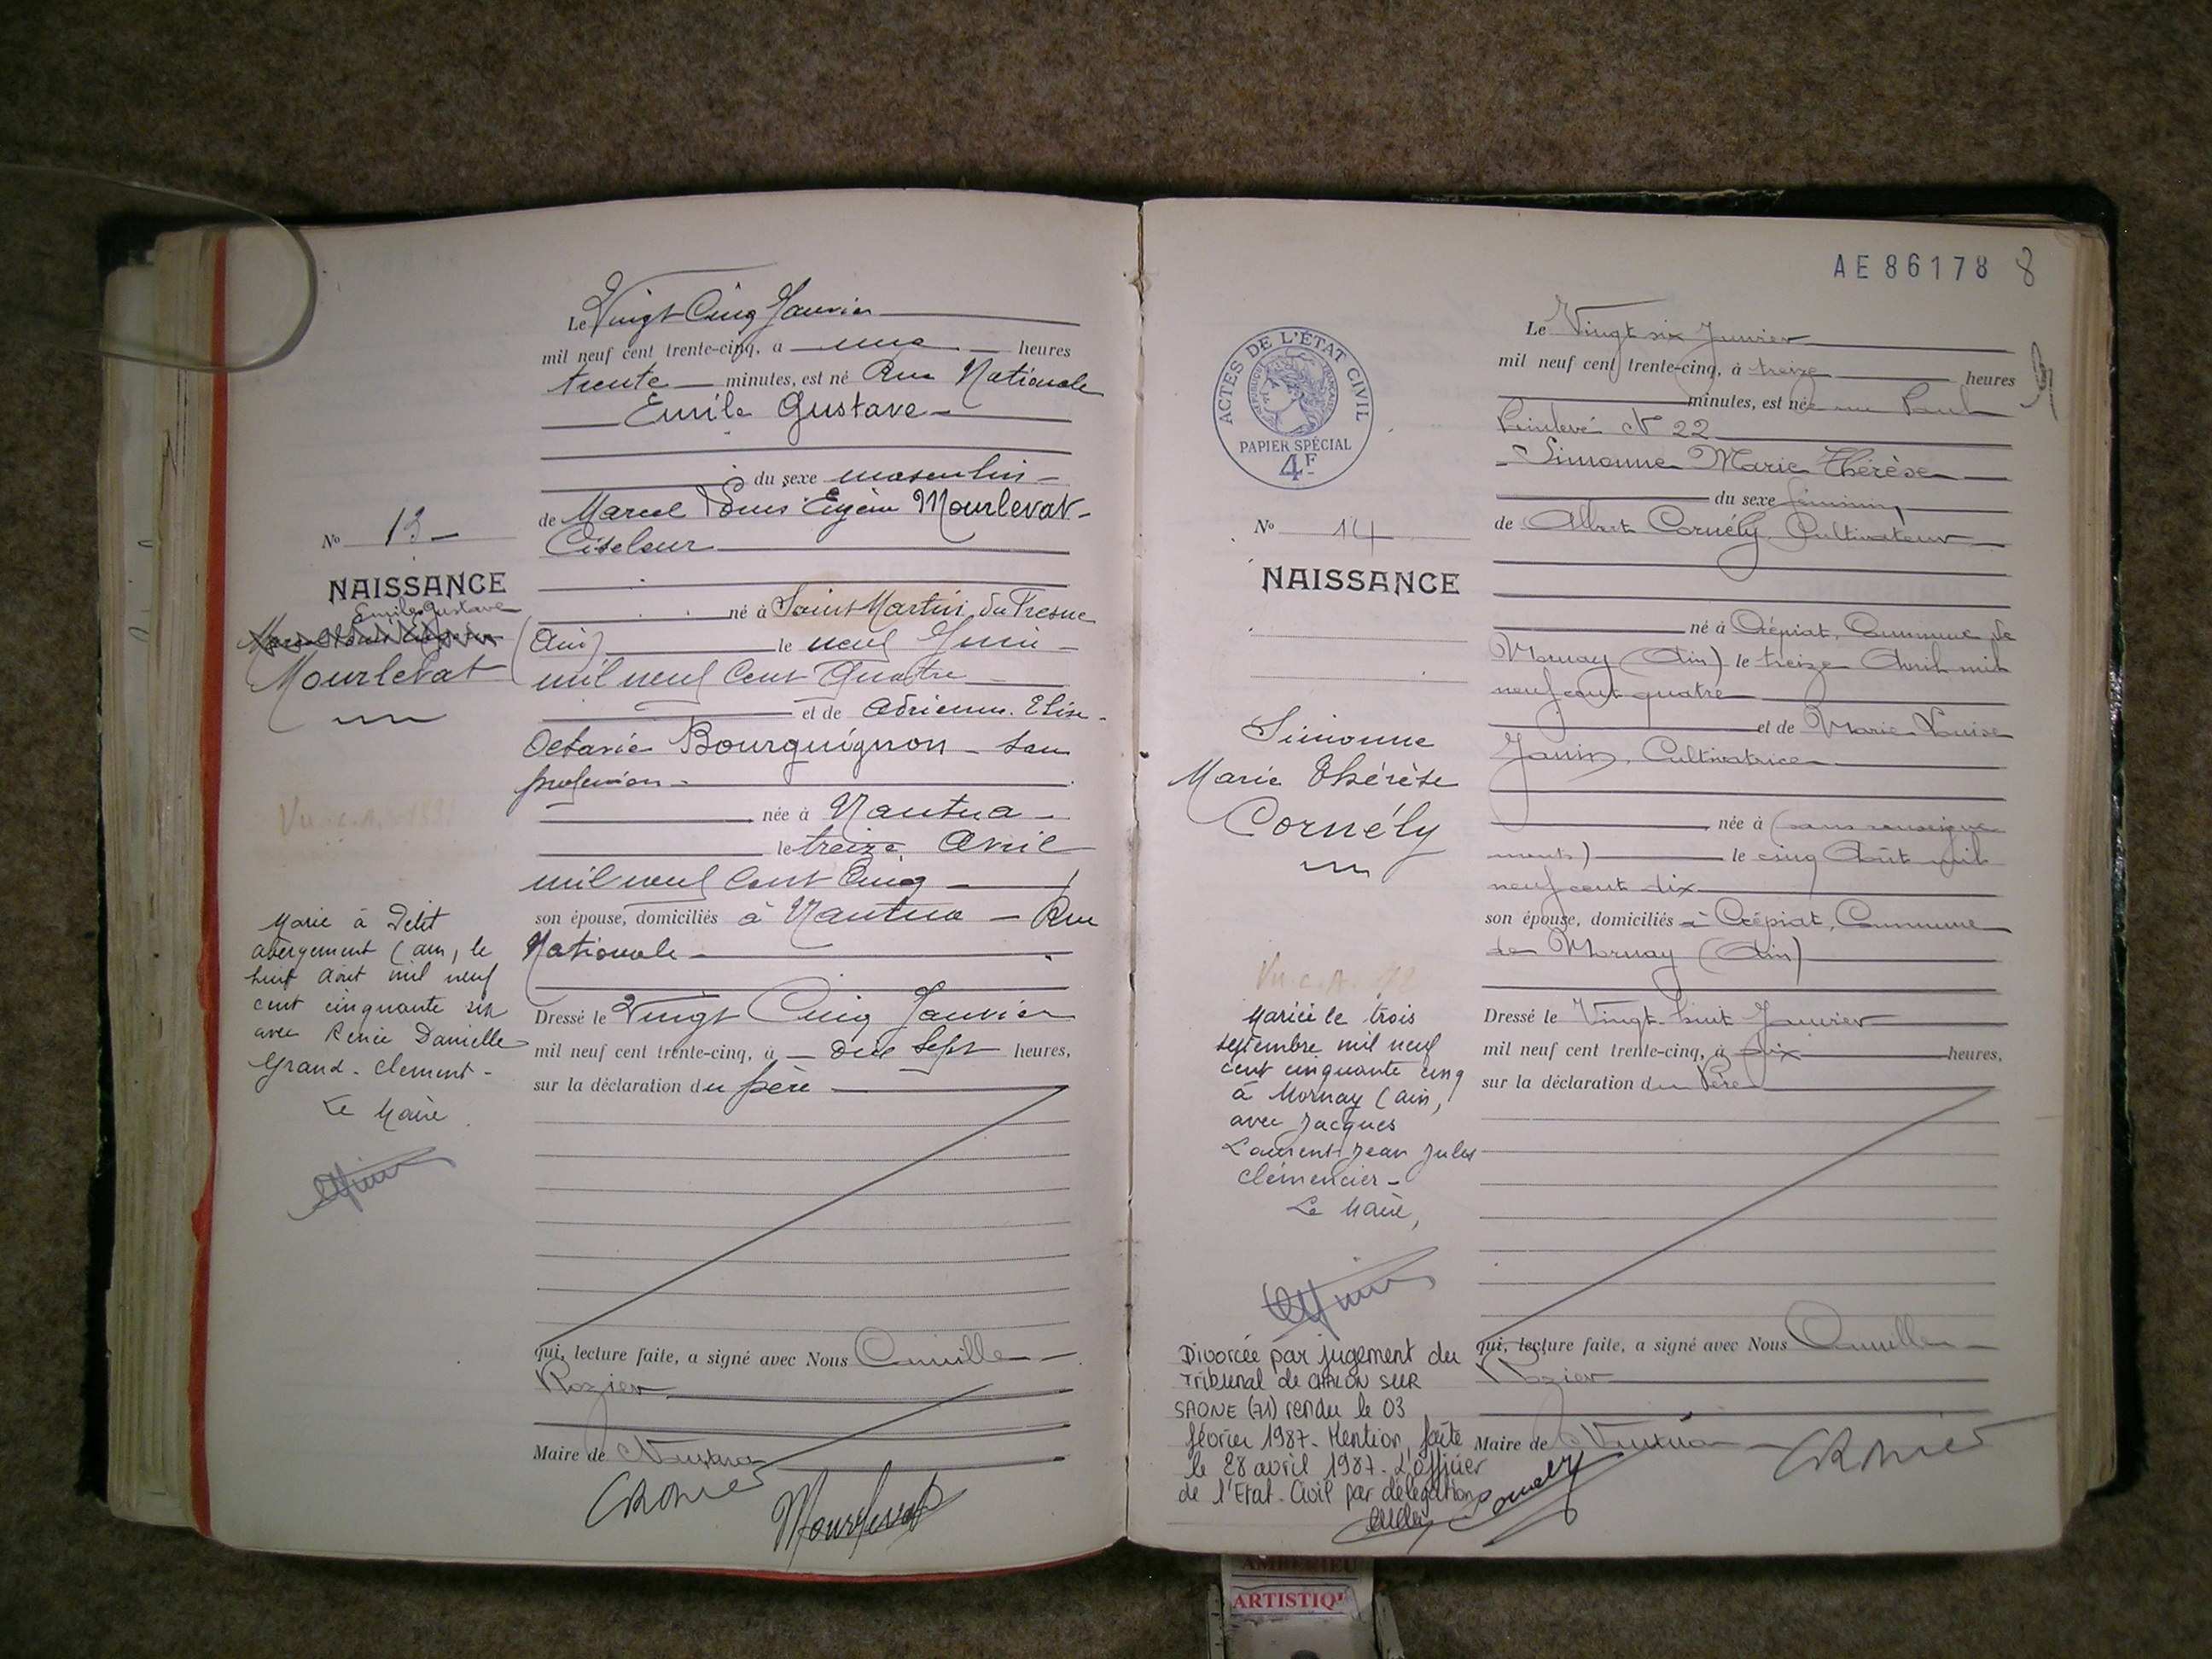 Le Vingt Cinq Janvier
mil neuf cent trente-cinq, à une heures
trente minutes, est né Rue Nationale
Emile Gustave
du sexe masculin
de Marcel Louis Eugène Mourlevat
Ciseleur
né à Saint Martin du Fresne
(Ain) le neuf Juin
mil neuf Cent Quatre
et de Adrienne Elise
Octavie Bourguignon - sans
profession
née à Nantua
le treize Avril
mil neuf Cent Cinq
son épouse, domiciliés à Nantua - Rue
Nationale
Dressé le Vingt Cinq Janvier
mil neuf cent trente-cinq, à dix sept heures,
sur la déclaration du père
qui, lecture faite, a signé avec Nous Camille
Rozier
Maire de Nantua
Mourlevat
No 13
NAISSANCE
Emile Gustave
Mourlevat
Marié à Petit
abergement (ain, le
huit Août mil neuf
cent cinquante six
avec Renée Danielle
Grand-Clement-
Le Maire
AE 86178 8
ACTES DE L'ÉTAT CIVIL
PAPIER SPÉCIAL
4F
No 14
NAISSANCE
Simonne
Marie Thérèse
Cornély
Mariée le trois
septembre mil neuf
cent cinquante cinq
à Mornay (ain,
avec Jacques
Laurent Jean Jules
Clémencier -
Le Maire,
Divorcée par jugement du
Tribunal de CHALON SUR
SAONE (71) rendu le 03
février 1987. Mention faite
le 28 avril 1987. L'officier
de l'Etat-Civil par délégation
Le Vingt six Janvier
mil neuf cent trente-cinq, à treize heures
minutes, est née rue Paul
Painlevé N° 22
Simonne Marie Thérèse
du sexe féminin
de Albert Cornély, Cultivateur
né à Crépiat, Commune de
Mornay (Ain) le treize Avril mil
neuf cent quatre
et de Marie Louise
Janin, Cultivatrice
née à (sans renseigne
ments) le cinq Août mil
neuf cent dix
son épouse, domiciliés à Crépiat, Commune
de Mornay (Ain)
Dressé le Vingt-huit Janvier
mil neuf cent trente-cinq, à dix heures,
sur la déclaration du Père
qui, lecture faite, a signé avec Nous Camille
Rozier
Maire de Nantua
AMBERIEU
ARTISTIQ